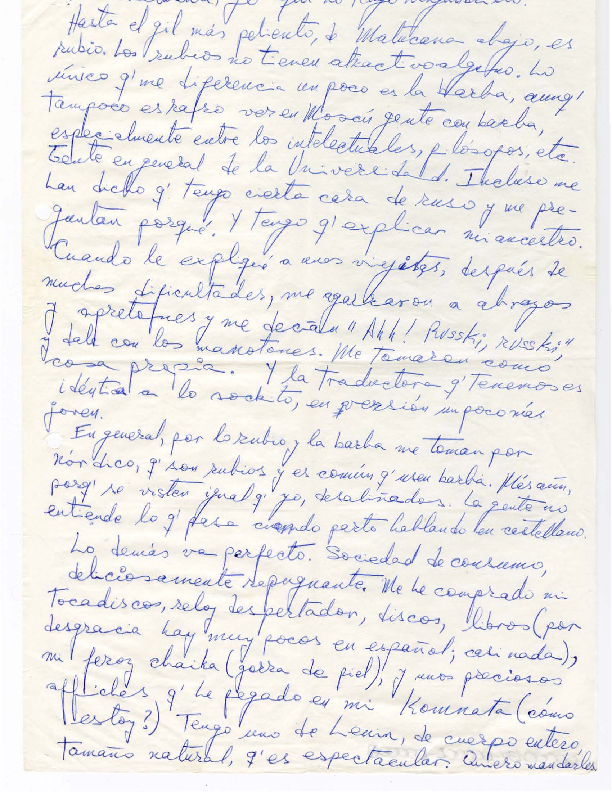 Hasta el gil más peliento, de Matucana abajo, es
rubio. Los rubios no tienen atractivo alguno. Lo
único q' me diferencia un poco es la barba, aunq'
tampoco es raro ver en Moscú gente con barba,
especialmente entre los intelectuales, filósofos, etc.
Gente en general de la Universidad. Incluso me
han dicho q' tengo cierta cara de ruso y me pre-
guntan porqué. Y tengo q' explicar mi ancestro.
Cuando le expliqué a unos viejitos, después de
muchas dificultades, me agarraron a abrazos
y apretones y me decían "Ahh! Russki, russki"
y dale con los manotones. Me tomaron como
cosa propia. Y la traductora q' tenemos es
idéntica a lo sockito, en versión un poco más
joven.
En general, por lo rubio y la barba me toman por
nórdico, q' son rubios y es común q' usen barba. Mas aún,
porq' se visten igual q' yo, desaliñados. La gente no
entiende lo q' pasa cuando parto hablando en castellano.
Lo demás va perfecto. Sociedad de consumo,
deliciosamente repugnante. Me he comprado mi
tocadiscos, reloj despertador, discos, libros (por
desgracia hay muy pocos en español; casi nada),
mi feroz chaika (gorra de piel), y unos preciosos
affiches q' he pegado en mi Komnata (cómo
estoy?) Tengo uno de Lenin, de cuerpo entero,
tamaño natural, q' es espectacular. Quiero mandarles